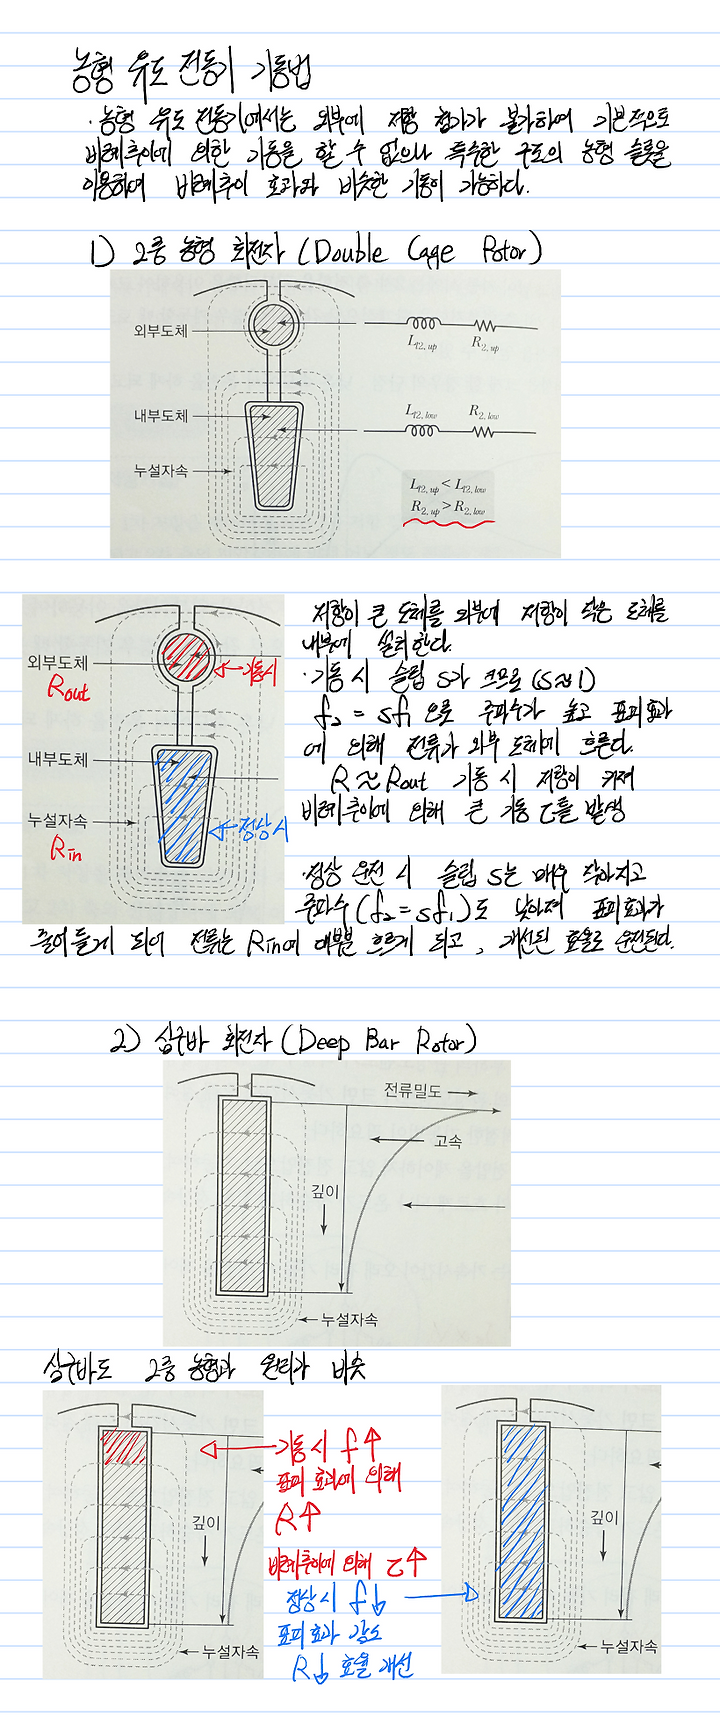 농형 유도 전동기 기동법
· 농형 유도 전동기에서는 외부에 저항 첨가가 불가하여 기본적으로
비례추이에 의한 기동을 할 수 없으나 특수한 구조의 농형 슬롯을
이용하여 비례추이 효과와 비슷한 기동이 가능하다.
1) 2중 농형 회전자 (Double Cage Rotor)
외부도체
L12, up R2, up
내부도체
L12, low R2, low
누설자속
L12, up < L12, low
R2, up > R2, low
저항이 큰 도체를 외부에 저항이 작은 도체를
내부에 설치한다.
· 기동 시 슬립 s가 크므로 (s≈1)
f2 = sf1 으로 주파수가 높고 표피효과
에 의해 전류가 외부 도체에 흐른다.
R ≈ Rout 기동 시 저항이 커져
비례추이에 의해 큰 기동 τ를 발생
외부도체
Rout
기동시
내부도체
누설자속
정상시
Rin
· 정상 운전 시 슬립 s는 매우 작아지고
주파수 (f2=sf1)도 낮아져 표피효과가
줄어들게 되어 전류는 Rin에 대부분 흐르게 되고, 개선된 효율로 운전된다.
2) 심구바 회전자 (Deep Bar Rotor)
전류밀도
고속
깊이
누설자속
심구바도 2중 농형과 원리가 비슷
기동 시 f↑
표피 효과에 의해
R↑
비례추이에 의해 τ↑
정상 시 f↓
표피효과 감소
R↓ 효율 개선
깊이
누설자속
깊이
누설자속